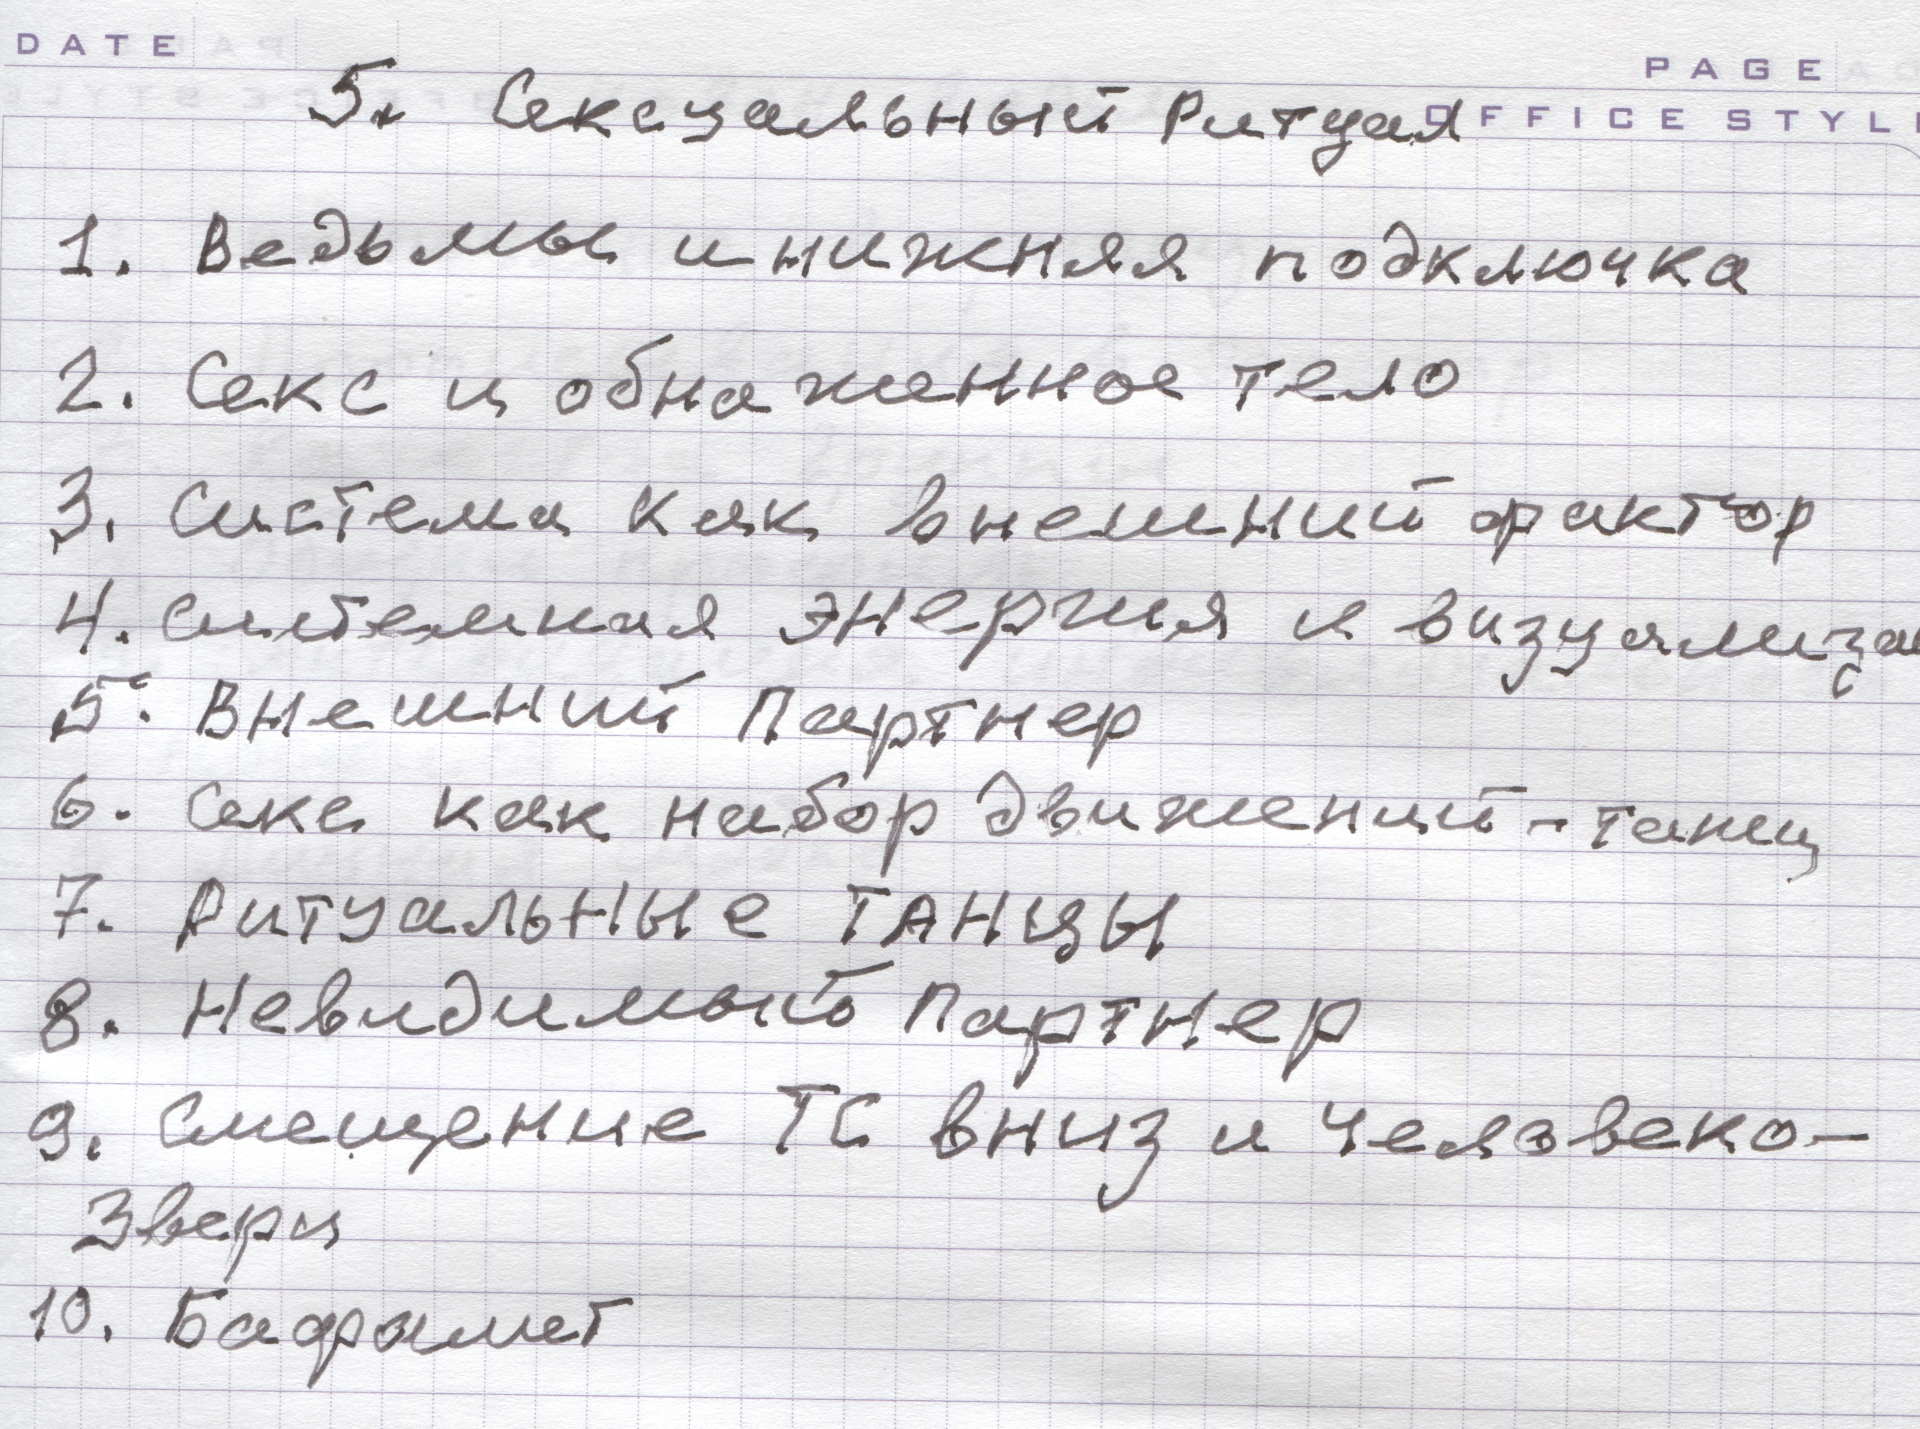 DATE
PAGE
OFFICE STYL
5. Сексуальный Ритуал
1. Ведьмы и нижняя подключка
2. Секс и обнаженное тело
3. Система как внешний фактор
4. Системная энергия и визуализа
5. Внешний Партнер
6. Секс как набор движений - танец
7. Ритуальные танцы
8. Невидимый Партнер
9. Смещение ТС вниз и человеко-
звери
10. Бафомет